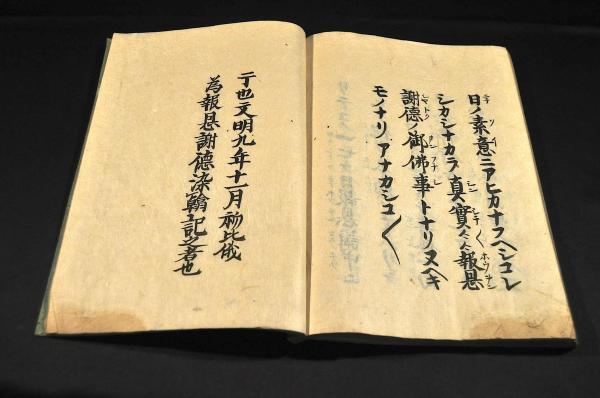 日ノ素意ニアヒカナフヘシコレ
シカシナカラ真實々々報恩
謝德ノ御佛事トナリヌヘキ
モノナリアナカシコ〱
于時文明九年十一月初比俄
為報恩謝德染翰記之者也